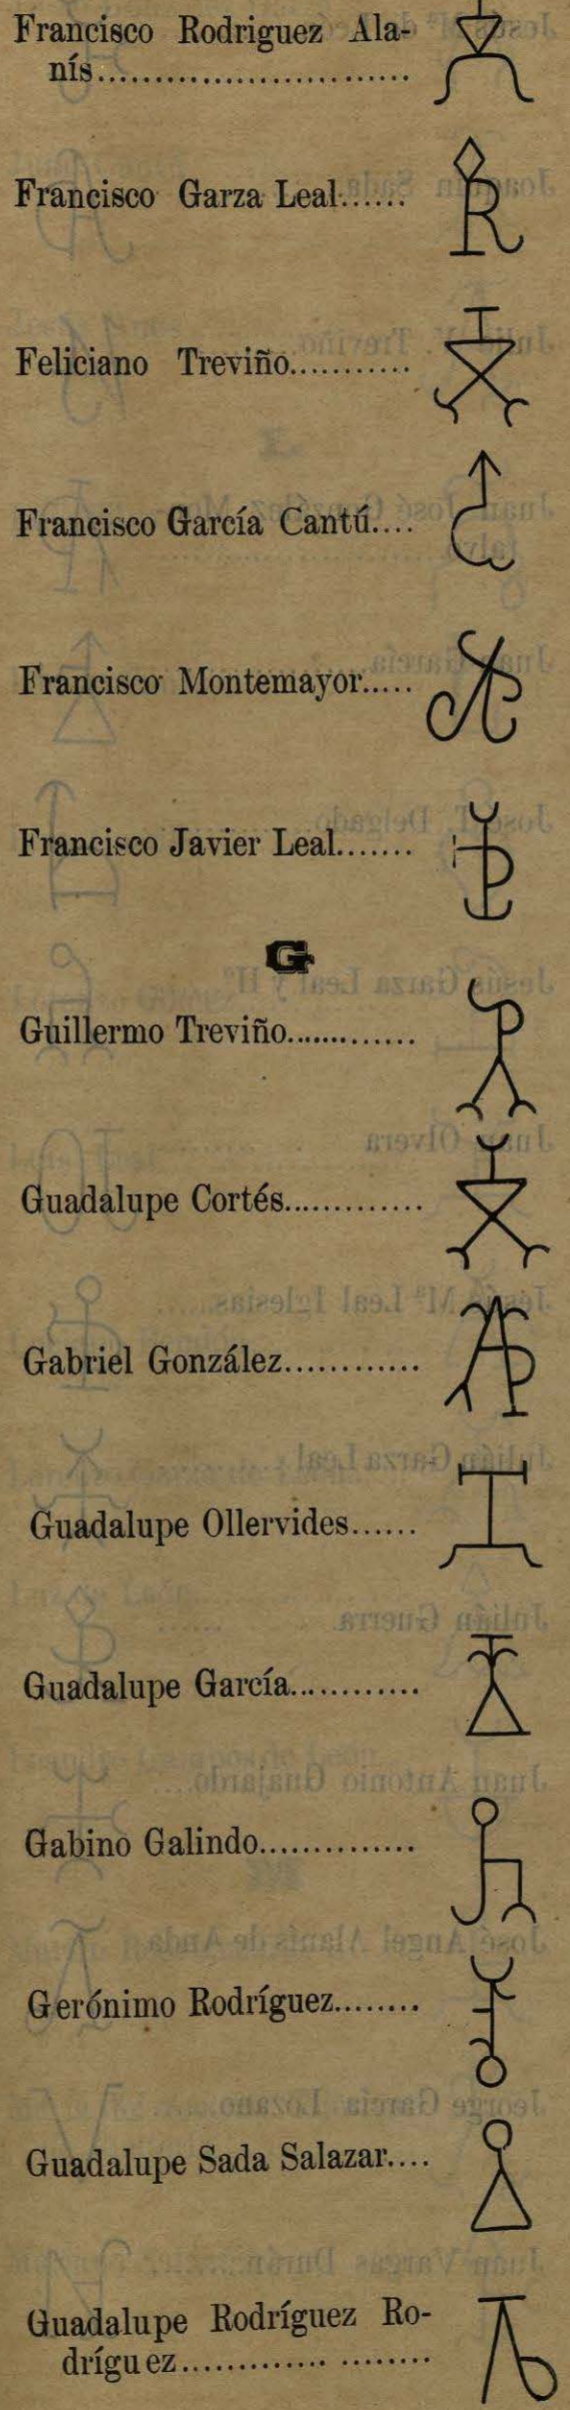 Francisco Rodriguez Ala-
nís............................
Francisco Garza Leal......
Feliciano Treviño...........
Francisco García Cantú....
Francisco Montemayor.....
Francisco Javier Leal.......
G
Guillermo Treviño.............
Guadalupe Cortés.............
Gabriel González............
Guadalupe Ollervides......
Guadalupe García............
Gabino Galindo..............
Gerónimo Rodríguez........
Guadalupe Sada Salazar....
Guadalupe Rodríguez Ro-
dríguez.......................